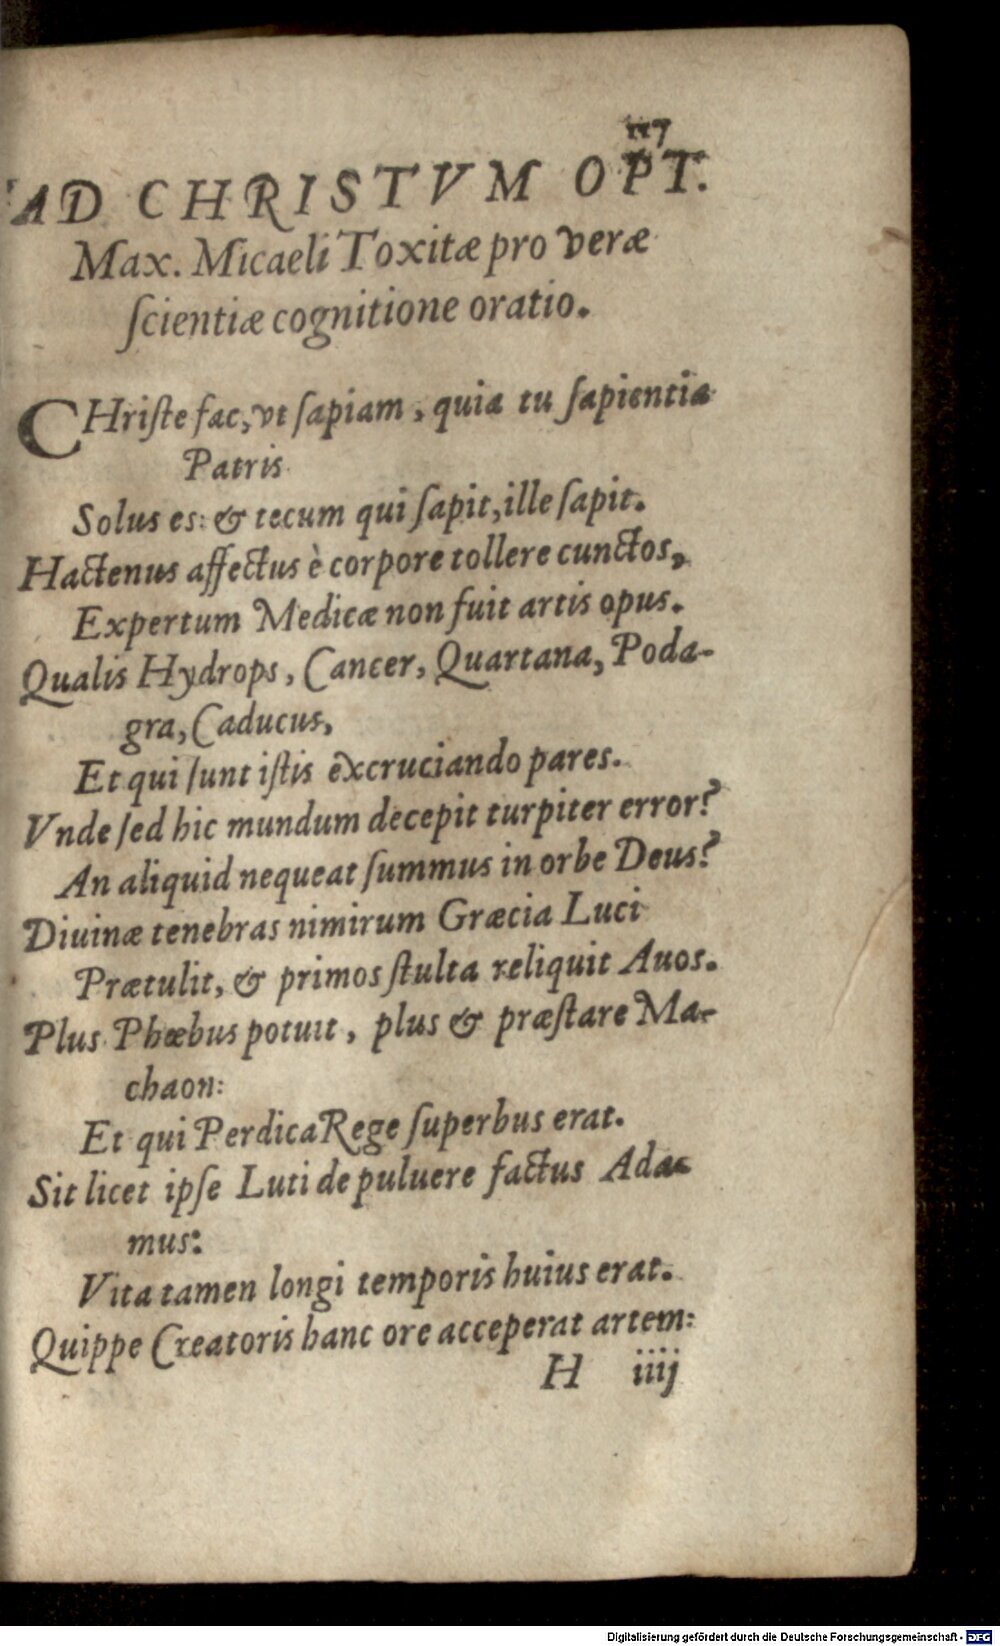 117
AD CHRISTVM OPT.
Max. Micaeli Toxitæ pro veræ
ſcientiæ cognitione oratio.
CHriſte fac, vt ſapiam, quia tu ſapientia
Patris
Solus es: & tecum qui ſapit, ille ſapit.
Hactenus affectus è corpore tollere cunctos,
Expertum Medicæ non fuit artis opus.
Qualis Hydrops, Cancer, Quartana, Poda-
gra, Caducus,
Et qui ſunt iſtis excruciando pares.
Vnde ſed hic mundum decepit turpiter error?
An aliquid nequeat ſummus in orbe Deus?
Diuinæ tenebras nimirum Græcia Luci
Prætulit, & primos ſtulta reliquit Auos.
Plus Phœbus potuit, plus & præſtare Ma-
chaon:
Et qui Perdica Rege ſuperbus erat.
Sit licet ipſe Luti de puluere factus Ada-
mus:
Vita tamen longi temporis huius erat.
Quippe Creatoris hanc ore acceperat artem:
H iiij
Digitalisierung gefördert durch die Deutsche Forschungsgemeinschaft - DFG